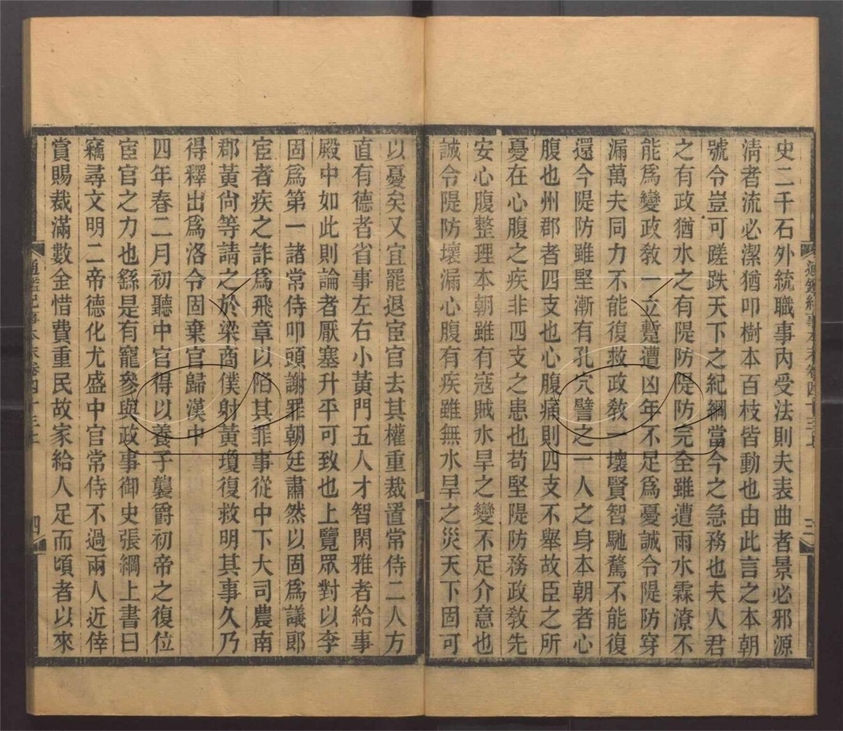 史二千石外統職事內受法則夫表曲者景必邪源
清者流必潔猶叩樹本百枝皆動也由此言之本朝
號令豈可蹉跌天下之紀綱當今之急務也夫人君
之有政猶水之有隄防隄防完全雖遭雨水霖潦不
能爲變政教一立蹔遭凶年不足爲憂誠令隄防穿
漏萬夫同力不能復救政教一壞賢智馳騖不能復
還今隄防雖堅漸有孔穴譬之一人之身本朝者心
腹也州郡者四支也心腹痛則四支不舉故臣之所
憂在心腹之疾非四支之患也苟堅隄防務政教先
安心腹整理本朝雖有寇賊水旱之變不足介意也
誠令隄防壞漏心腹有疾雖無水旱之災天下固可
通鑑紀事本末卷四十三上
三
以憂矣又宜罷退宦官去其權重裁置常侍二人方
直有德者省事左右小黃門五人才智閑雅者給事
殿中如此則論者厭塞升平可致也上覽眾對以李
固爲第一諸常侍叩頭謝罪朝廷肅然以固爲議郎
宦者疾之詐爲飛章以陷其罪事從中下大司農南
郡黃尙等請之於梁商僕射黃瓊復救明其事久乃
得釋出爲洛令固棄官歸漢中
四年春二月初聽中官得以養子襲爵初帝之復位
宦官之力也繇是有寵參與政事御史張綱上書曰
竊尋文明二帝德化尤盛中官常侍不過兩人近倖
賞賜裁滿數金惜費重民故家給人足而頃者以來
通鑑紀事本末卷四十三上
四